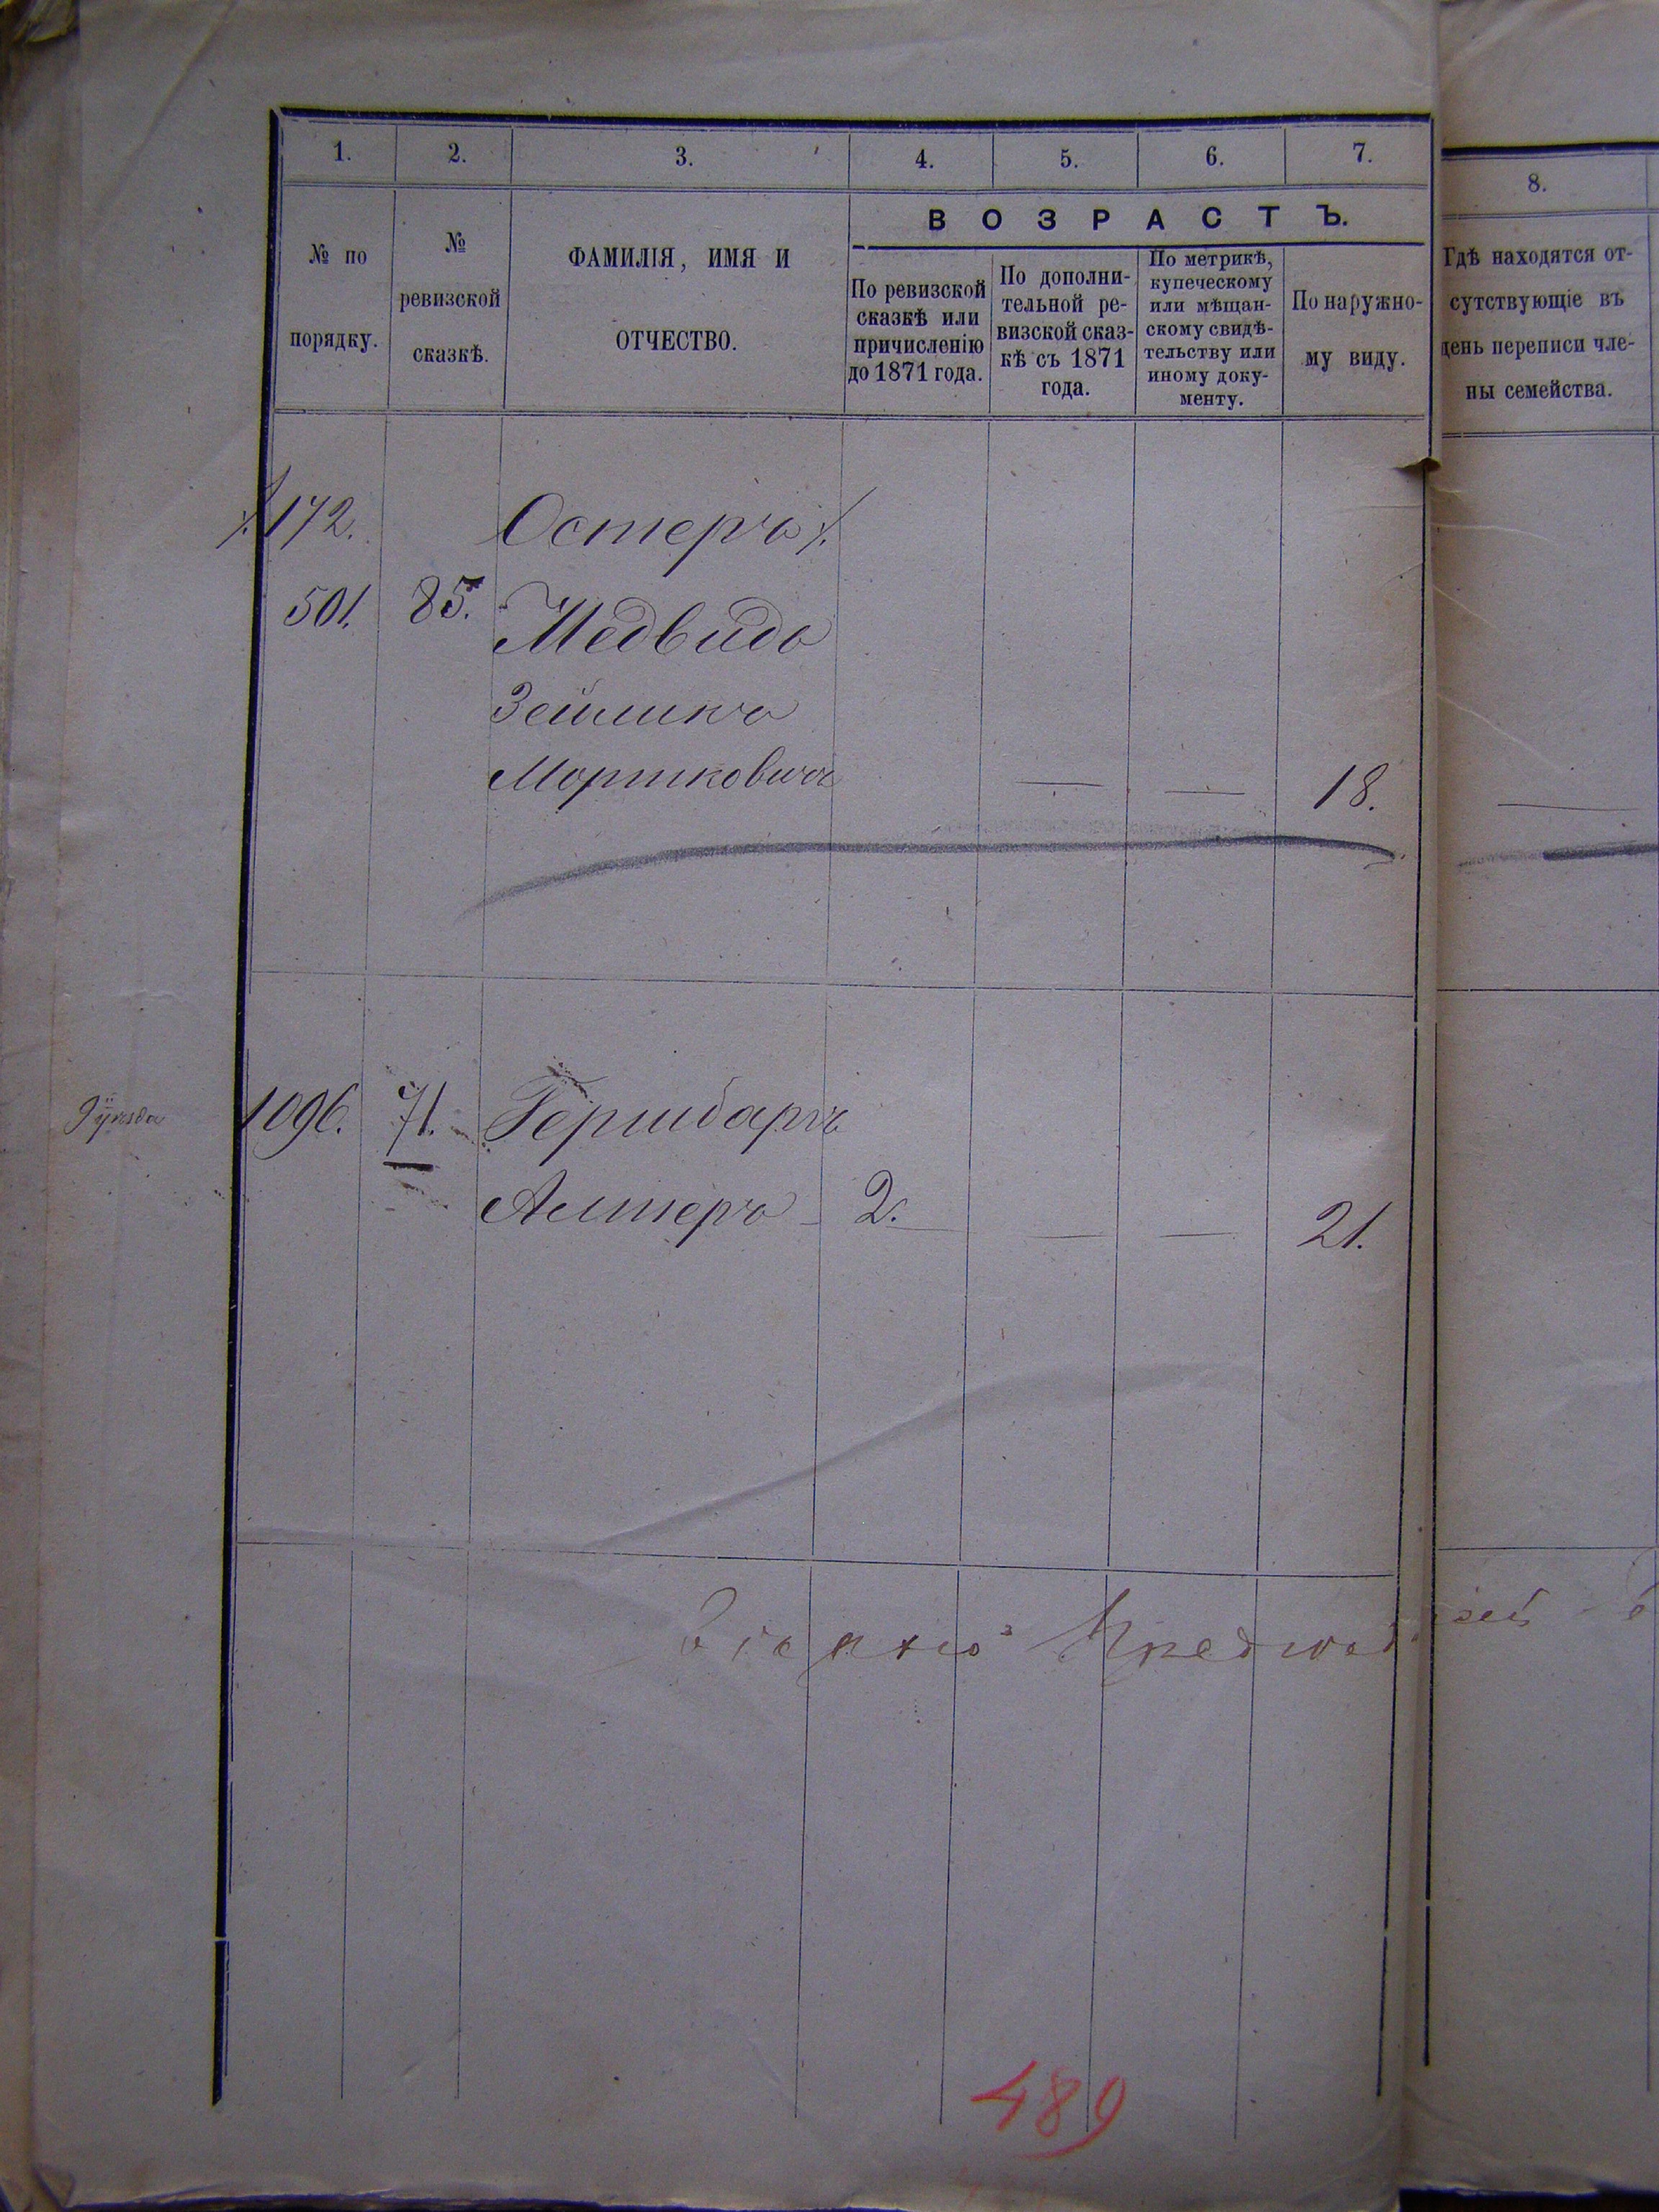 1.
2.
3.
4.
5.
6.
7.
8.
№ по
порядку.
№
ревизской
сказкѣ.
ФАМИЛІЯ, ИМЯ И
ОТЧЕСТВО.
ВОЗРАСТЪ.
По ревизской
сказкѣ или
причисленію
до 1871 года.
По дополни-
тельной ре-
визской сказ-
кѣ съ 1871
года.
По метрикѣ,
купеческому
или мѣщан-
скому свидѣ-
тельству или
иному доку-
менту.
По наружно-
му виду.
Гдѣ находятся от-
сутствующіе въ
день переписи чле-
ны семейства.
172. Остеръ
501. 85. Медвидь
Зейликъ
Мортковичъ — — 18. —
1096. 71. Гершбаръ
Алтеръ 2. — — 21.
489